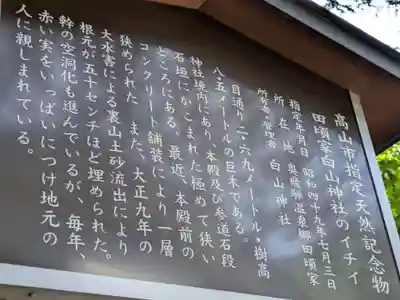 高山市指定天然記念物
田頃家白山神社のイチイ
指定年月日 昭和四十九年七月三日
所在地 奥飛騨温泉郷田頃家
所有者・管理者 白山神社
目通り二・六九メートル・樹高
八・五メートルの巨木である。
神社境内にあり、本殿及び参道石段
石垣にかこまれた極めて狭い
ところにある。最近、本殿前の
コンクリート舗装により一層
狭められた。また、大正九年の
大水害による裏山土砂流出により
根元が五十センチほど埋められた。
幹の空洞化も進んでいるが、毎年、
赤い実をいっぱいにつけ地元の
人に親しまれている。